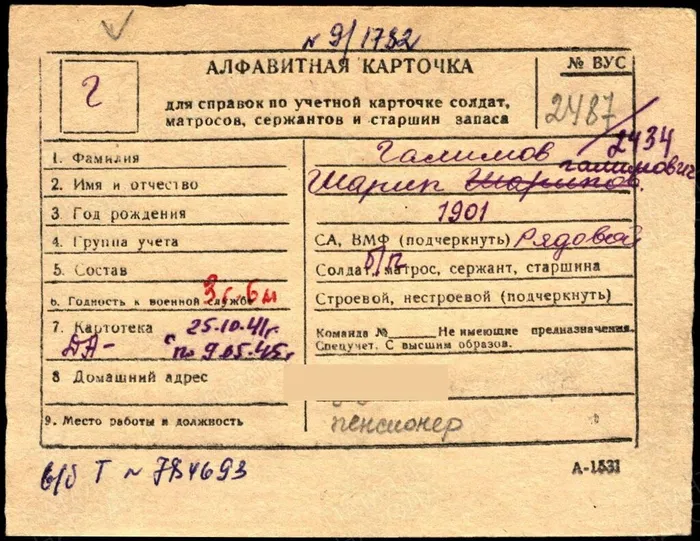 № 9/1732
АЛФАВИТНАЯ КАРТОЧКА
№ ВУС
Г
для справок по учетной карточке солдат,
матросов, сержантов и старшин запаса
2487/2434
1. Фамилия Галимов
2. Имя и отчество Шарип Шарипов. Галимович
3. Год рождения 1901
4. Группа учета СА, ВМФ (подчеркнуть) Рядовой
5. Состав Солдат, матрос, сержант, старшина
б/п
6. Годность к военной службе Строевой, нестроевой (подчеркнуть)
3г. 6м
7. Картотека 25.10.41г. Команда № Не имеющие предназначения.
Спецучет. С высшим образов.
ДА- по 9.05.45г
8 Домашний адрес
9. Место работы и должность пенсионер
в/б Т № 784693
А-1531